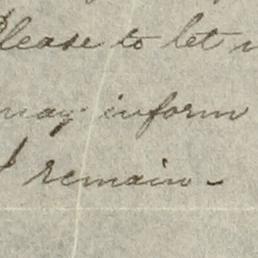 Please to let
may inform
I remain-